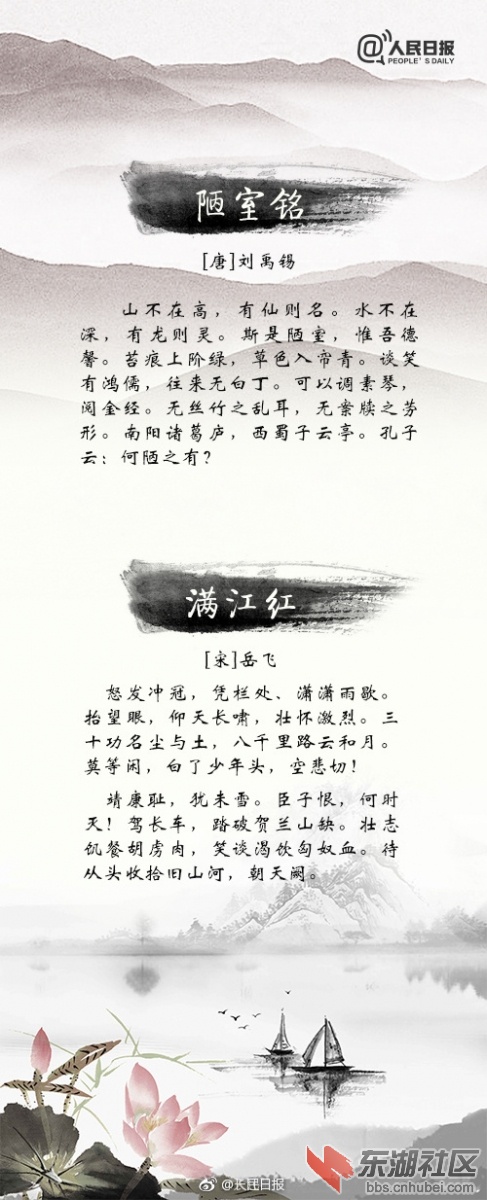 @人民日报
PEOPLE'S DAILY
陋室铭
[唐]刘禹锡
山不在高，有仙则名。水不在
深，有龙则灵。斯是陋室，惟吾德
馨。苔痕上阶绿，草色入帘青。谈笑
有鸿儒，往来无白丁。可以调素琴，
阅金经。无丝竹之乱耳，无案牍之劳
形。南阳诸葛庐，西蜀子云亭。孔子
云：何陋之有？
满江红
[宋]岳飞
怒发冲冠，凭栏处、潇潇雨歇。
抬望眼，仰天长啸，壮怀激烈。三
十功名尘与土，八千里路云和月。
莫等闲，白了少年头，空悲切！
靖康耻，犹未雪。臣子恨，何时
灭！驾长车，踏破贺兰山缺。壮志
饥餐胡虏肉，笑谈渴饮匈奴血。待
从头收拾旧山河，朝天阙。
@人民日报
东湖社区
bbs.cnhubei.com